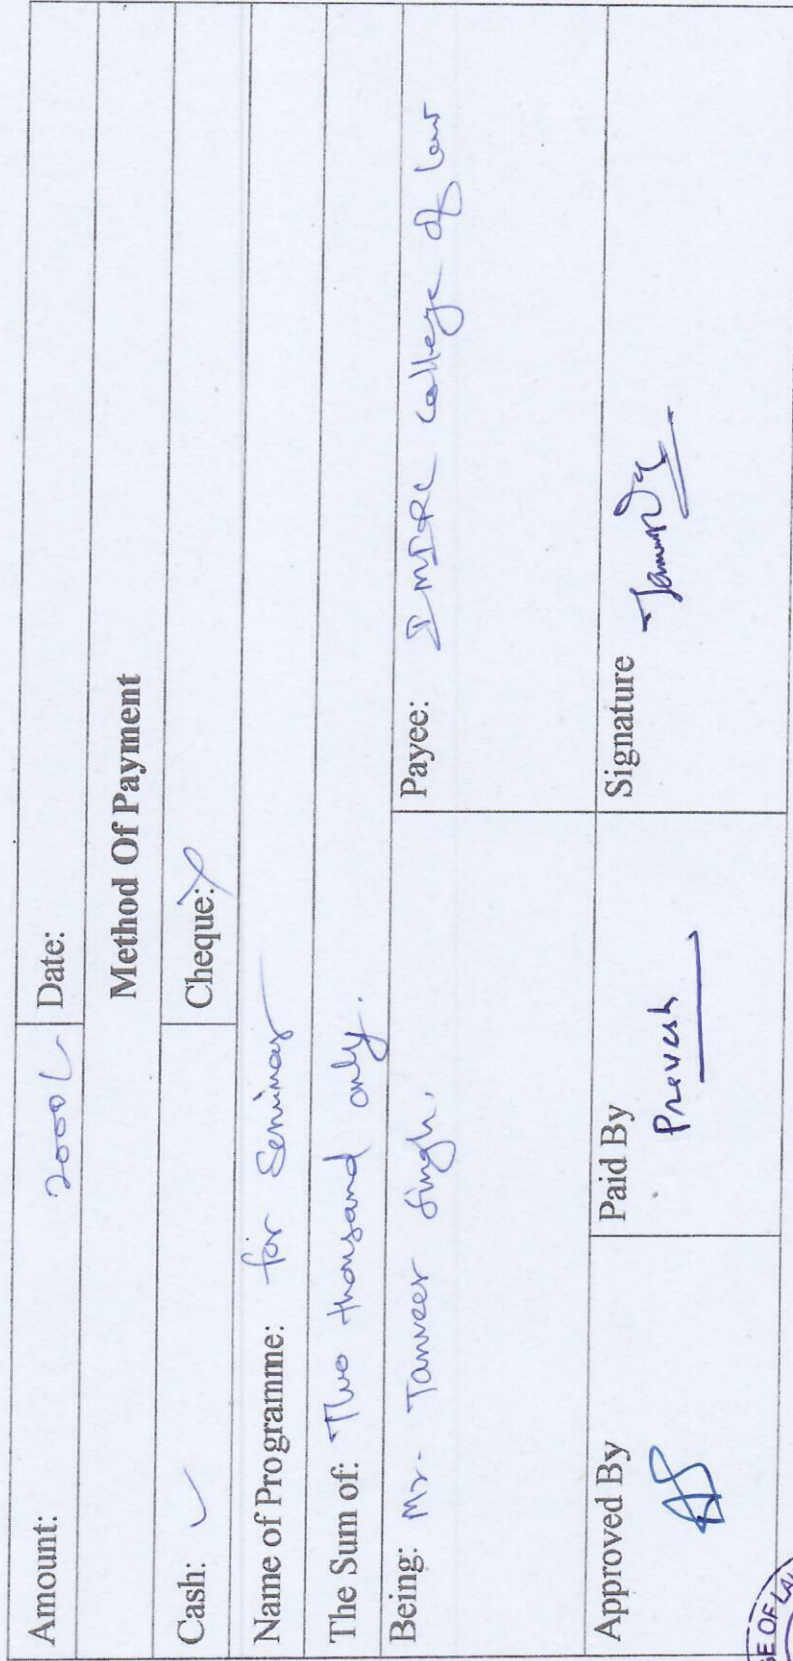 Amount: 2000/- Date:
Method Of Payment
Cash: ✓ Cheque: ✗
Name of Programme: for Seminar
The Sum of: Two thousand only.
Being: Mr. Tanveer Singh. Payee: IMIRC College of law
Approved By Paid By Signature
Pravesh
GE OF LAW